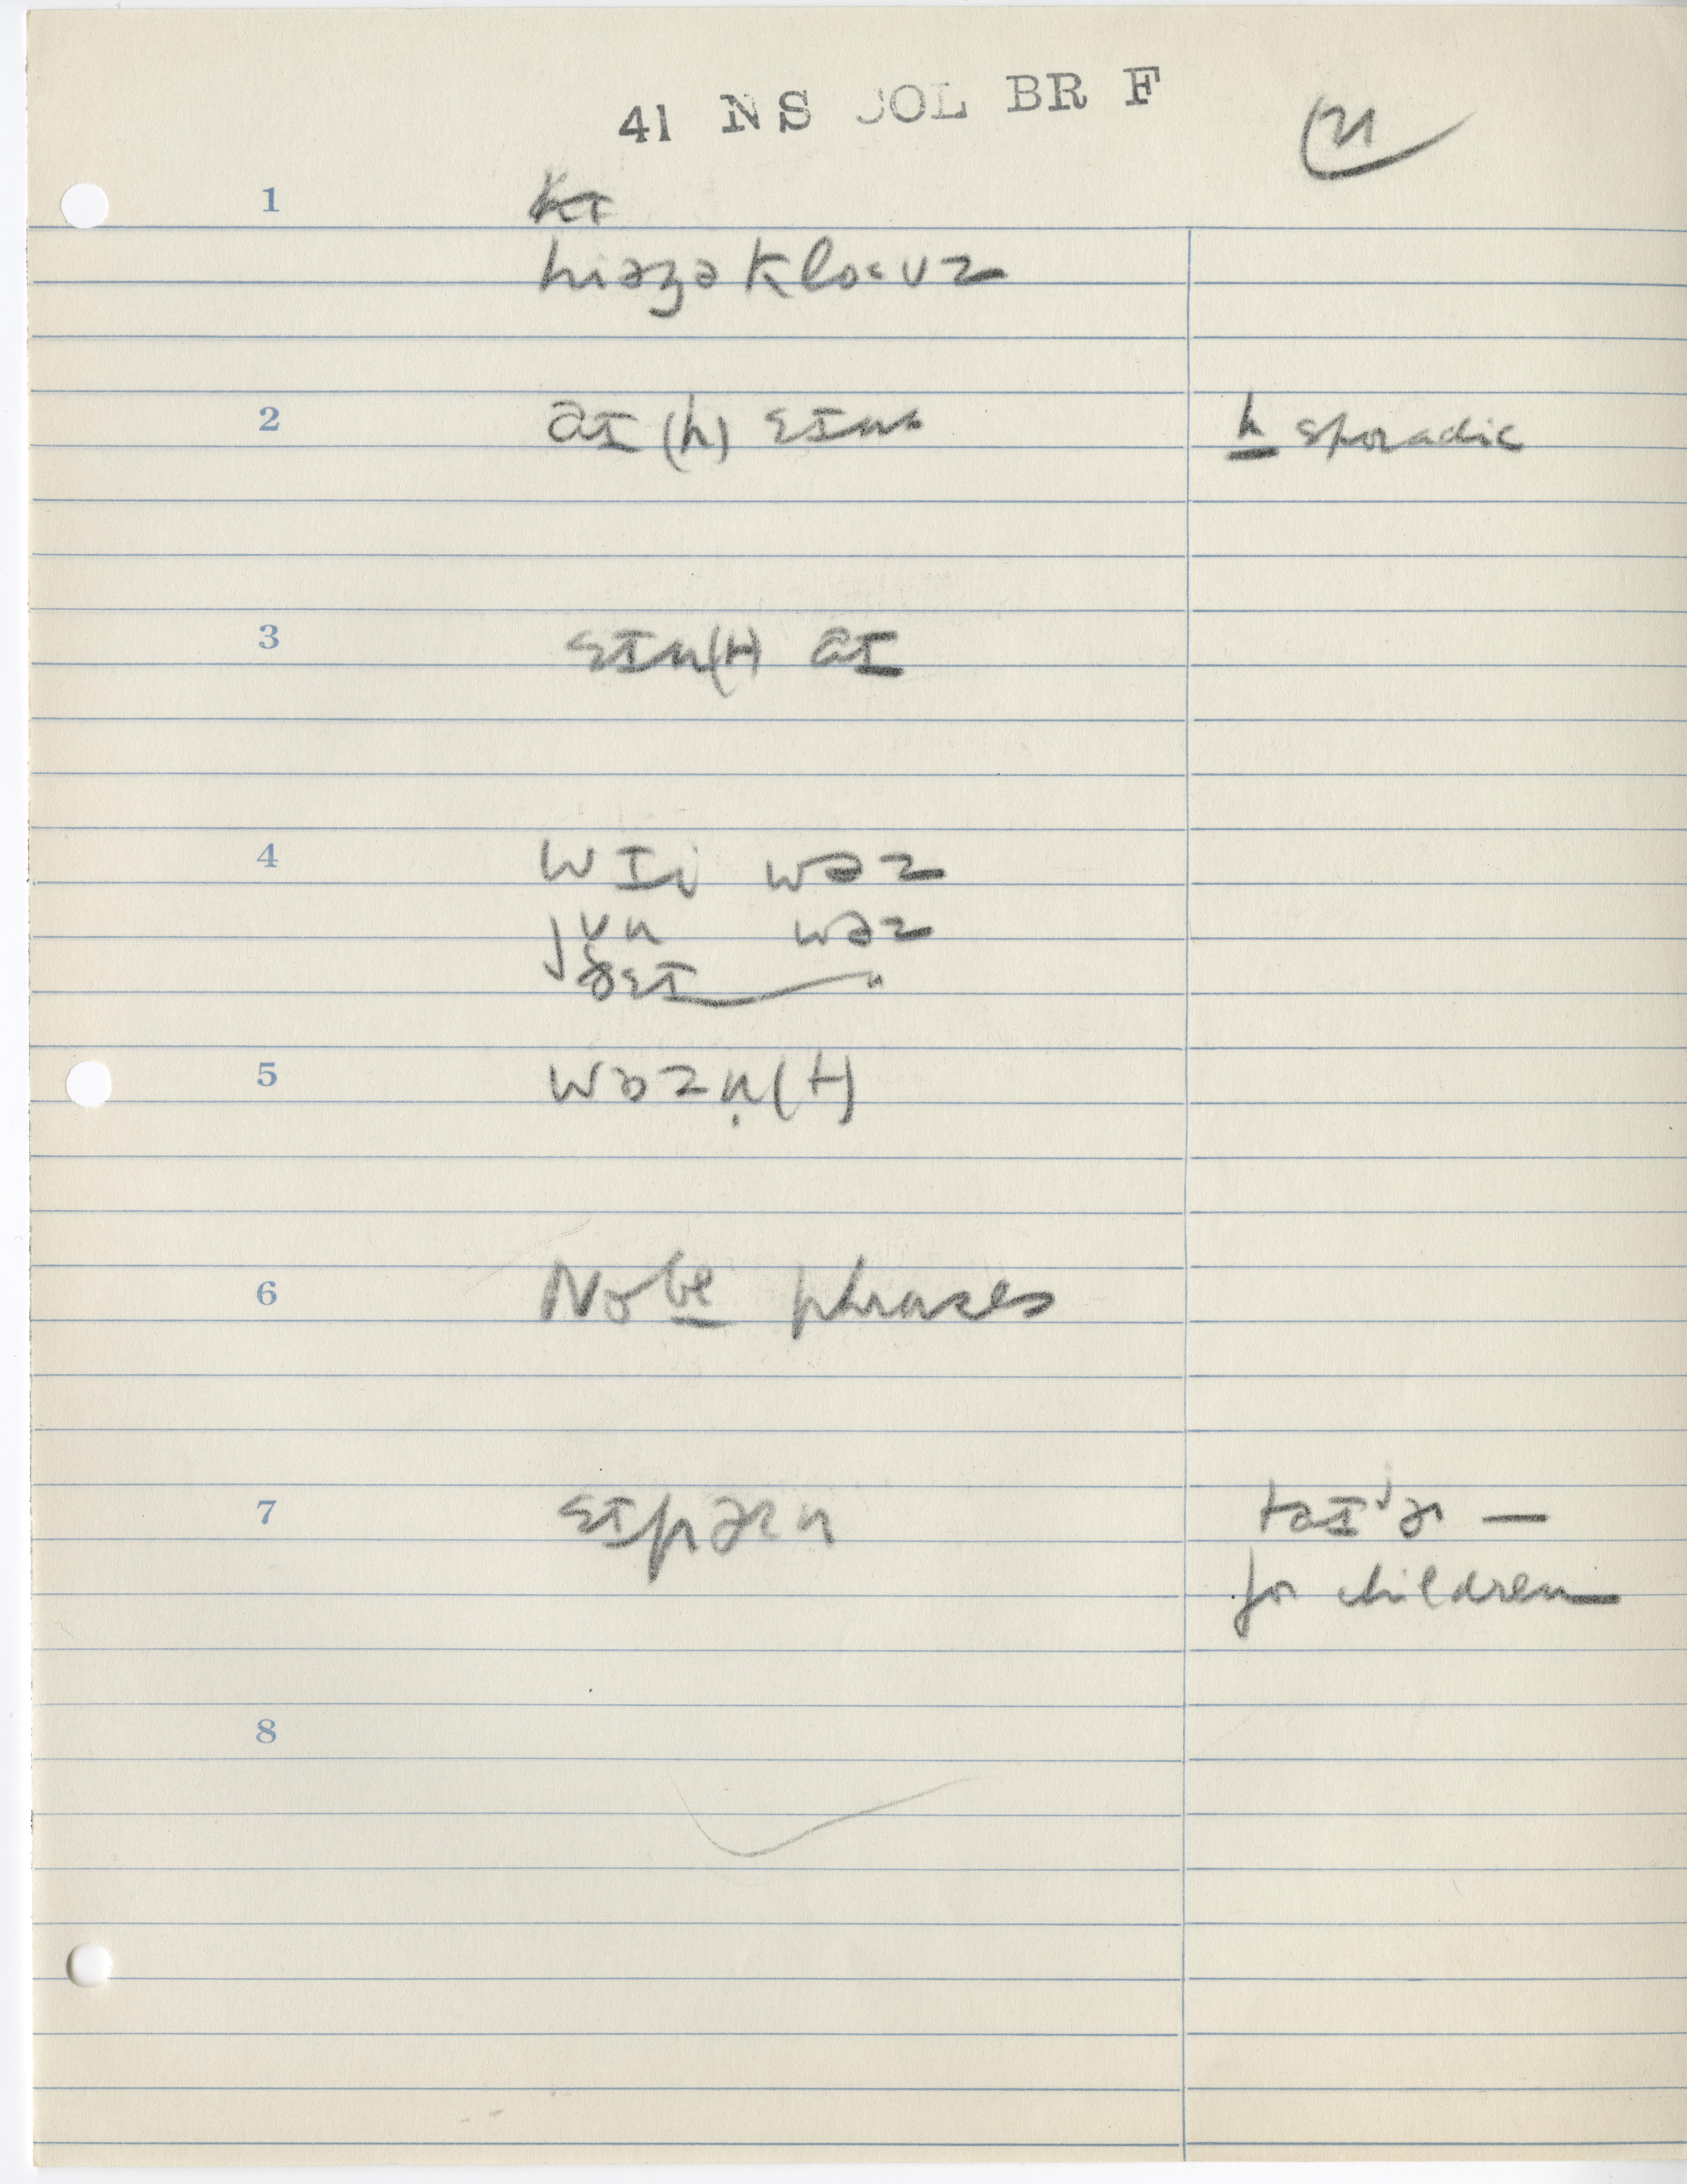 41 NS JOL BR F
21
1
hiəzə klo‹ʊz
2 aɪ (h) ɛɪnt h sporadic
3 ɛɪn(t) aɪ
4 wɪi wəz
jʊu wəz
ðɛɪ "
5 wɔzn̩(t)
6 No be phrases
7 ɛɪprən taɪ'ɚ —
for children
8